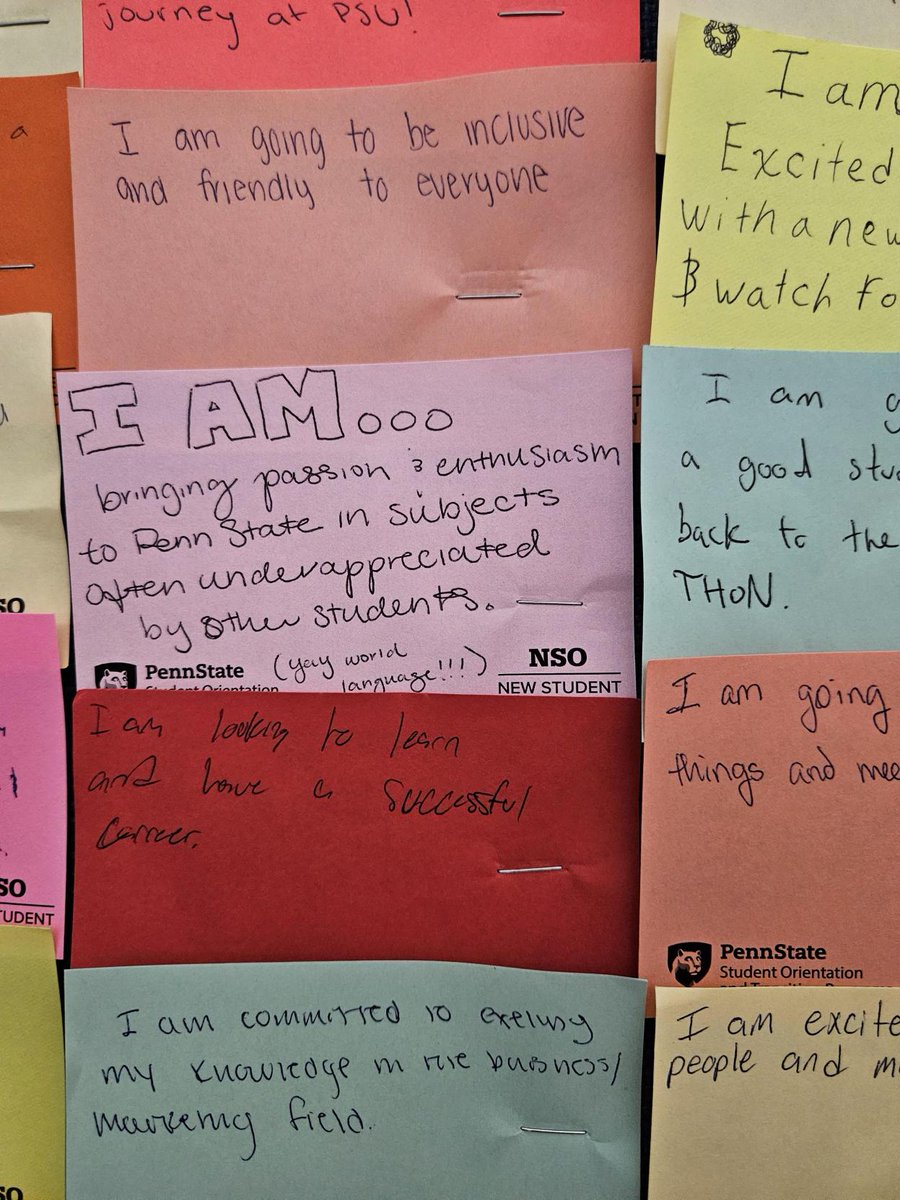 journey at PSU!
a
I am going to be inclusive
and friendly to everyone
I am
Excited
with a new
$ watch Fo
I AM...
bringing passion & enthusiasm
to Penn State in subjects
often underappreciated
by other students.
(yay world
language!!!)
PennState
Student Orientation
NSO
NEW STUDENT
I am g
a good stud
back to the
THON.
I am looking to learn
and have a successful
career.
I am going
things and mee
PennState
Student Orientation
NSO
TUDENT
I am committed to
my knowledge in the business/
marketing field.
I am excite
people and m
SO
SO